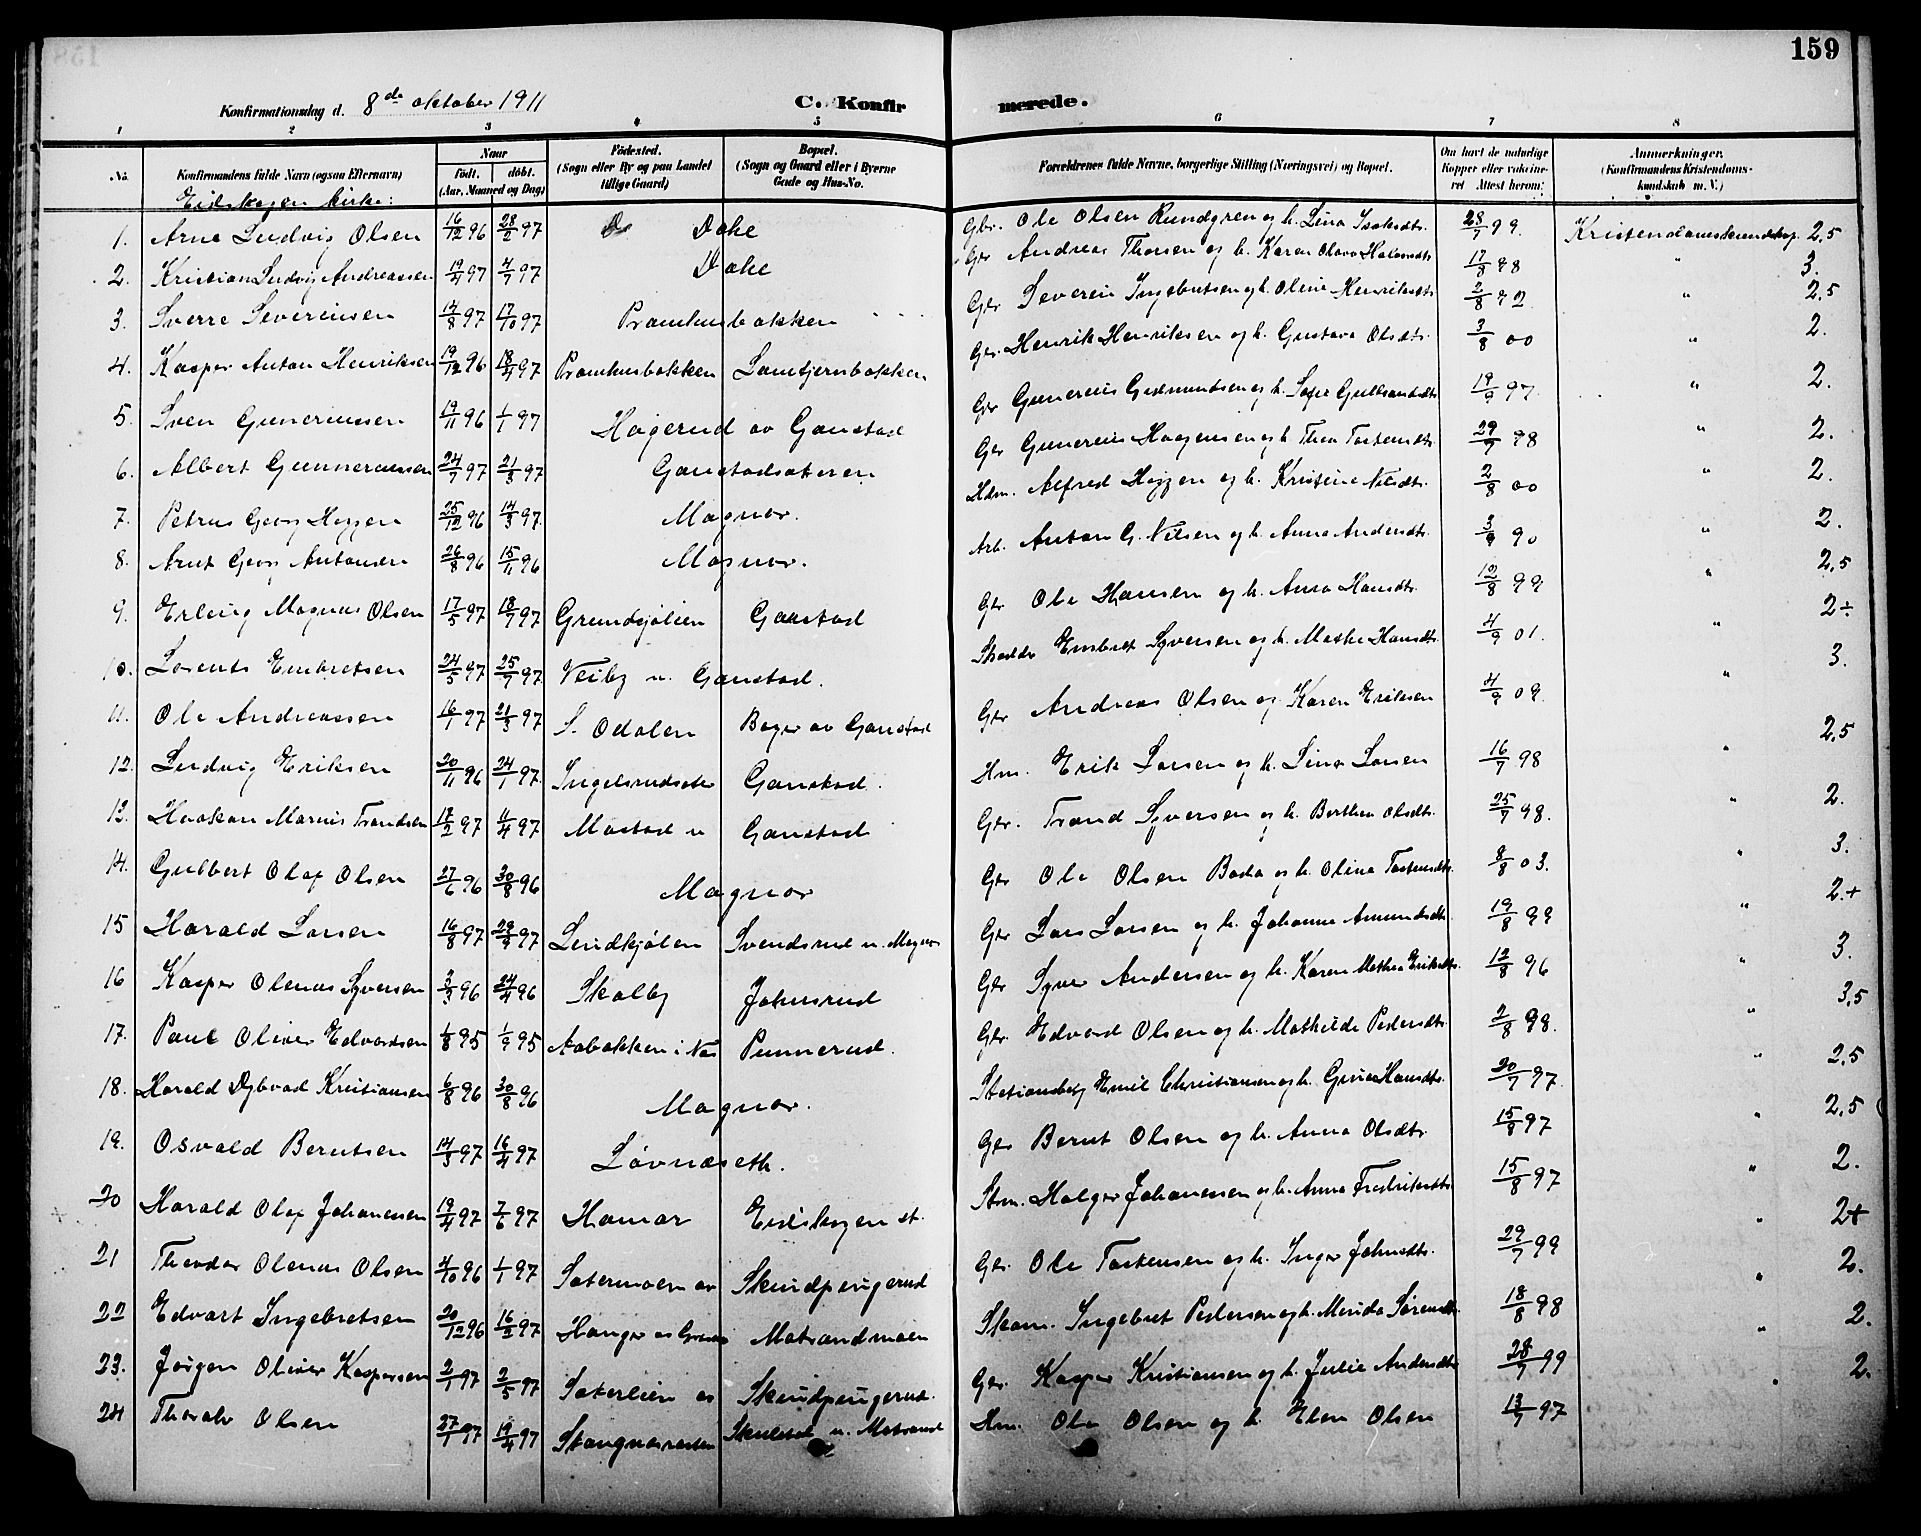 159
Konfirmationsdag d. 8de oktober 1911 C. Konfirmerede.
1 2 3 4 5 6 7 8
No. Konfirmandens fulde Navn (ogsaa Efternavn) Naar födt. döbt. (Aar, Maaned og Dag) Födested. (Sogn eller By og paa Landet tillige Gaard) Bopæl. (Sogn og Gaard eller i Byerne Gade og Hus-No. Forældrenes fulde Navne, borgerlige Stilling (Næringsvei) og Bopæl. Om havt de naturlige Kopper eller vaccineret Attest herom: Anmærkninger. (Konfirmandens Kristendomskundskab m. V.)
Eidskogen kirke:
1. Arne Ludvig Olsen 16/12 96 28/2 97 Gbr. Ole Olsen Rundgren og h. Lina Isaksdtr. 28/7 99. Kristendomskundskap. 2,5
2. Kristian Ludvig Andreassen 19/4 97 4/7 97 Gbr Andreas Thorsen og h. Karen Olava 17/8 98 " 3.
3. Sverre Severinsen 14/8 97 17/10 97 Pramhusbakken Gbr Severin Ingebretsen og h. Oline Henriksdtr 2/8 " 2,5
4. Kasper Anton Henriksen 19/12 96 18/4 97 Pramhusbakken Lomtjernbakken Gbr. Henrik Henriksen og h. Gustava Olsdtr. 3/8 00 " 2.
5. Sven Guneriussen 19/11 96 1/1 97 Hagerud av Gaustad Gbr Gunerius Gudmundsen og h. Sofie Gulbrandsdtr 19/9 97. " 2.
6. Albert Gunneriussen 24/7 97 21/3 97 Gaustadsæteren Gbr Gunerius Haagensen og h. Thea Torstensdtr. 29/7 98 " 2.
7. Petrus Georg Heggen 25/12 96 14/3 97. Magnor. Hdm. Alfred Heggen og h. Kristine Nilsdtr. 2/8 00 " 2.
8. Arnt Georg Antonsen 26/8 96 15/11 96 Magnor. Arb. Anton G. Nilsen og h. Anna Andersdtr. 3/9 90 " 2.
9. Erling Magnus Olsen 17/5 97 18/7 97 Grundsjølien Gaustad Gbr Ole Hansen og h. Anna Hansdtr. 12/8 99 " 2,5
10. Lorents Embretsen 24/5 97 25/7 97 Veiby u. Gaustad. Embret Syversen og h. Mathe Hansdtr. 4/9 01. " 2÷
11. Ole Andreassen 16/1 97 21/3 97 S. Odalen av Gaustad Gbr Andreas Olsen og Karen Eriksen 4/9 09. " 3.
12. Ludvig Eriksen 20/11 96 24/1 97. Ingelsrudsæter Gaustad. Hm. Erik Larsen og h. Lina Larsen 16/7 98 " 2,5
13. Haakon Marius Trondsen 12/2 97 11/4 97 Mastad u Gaustad Gbr. Trond Syversen og h. Berthea Olsdtr. 25/7 98. " 2.
14. Gulbert Olaf Olsen 27/6 96 30/8 96 Magnor Gbr Ole Olsen Bada og h. Olina Torstensdtr. 8/8 03. " 3.
15 Harald Larsen 16/8 97 29/9 97 Lindkjølen Svendsrud u. Magnor Gbr Lars Larsen og h. Johanne Amundsdtr. 19/8 99 " 2.+
16 Kasper Olenus Syversen 2/3 96 24/4 96 Skalby Johnsrud Gbr Syver Andersen og h. Karen Mathea Eriksdtr. 12/8 96 " 3.
17. Paul Oliver Edvardsen 1/8 95 1/9 95 Aabakken i Nes Punnerud. Gbr. Edvard Olsen og h. Mathilde Pedersdtr. 2/8 98. " 3,5
18. Harald Dybvad Kristiansen 6/8 96 30/8 96 Magnor. Emil Christiansen og h. Hansdtr. 30/7 97. " 2,5
19. Osvald Berntsen 14/3 97 16/4 97 Løvnæseth. Gbr Bernt Olsen og h. Anna Olsdtr 15/8 97 " 2,5
20 Harald Olaf Johanessen 19/4 97 7/6 97 Hamar Eidskogen st. Holger Johanessen og h. Anna Fredriksdtr. 15/8 97 " 2.
21 Theodor Olenus Olsen 4/10 96 1/1 97 Sætermoen av Skindpungerud Gbr. Ole Torstensen og h. Inger Johnsdtr. 29/7 99 " 2+
22 Edvart Ingebretsen 20/12 96 16/2 97 Matrandmoen Skom. Ingebret Pedersen og h. Merida Sørensdtr. 18/8 98 " 2.
23. Jørgen Oliver Kaspersen 2/1 97 2/5 97 Sæterlien av Skindpungerud. Gbr. Kasper Kristiansen og h. Julie Andersdtr 28/7 99 " 2.
24 Thoralv Olsen 27/1 97 19/4 97 u. Matrand Hm. Ole Olsen og h. Elen Olsen 13/7 97 " 2.